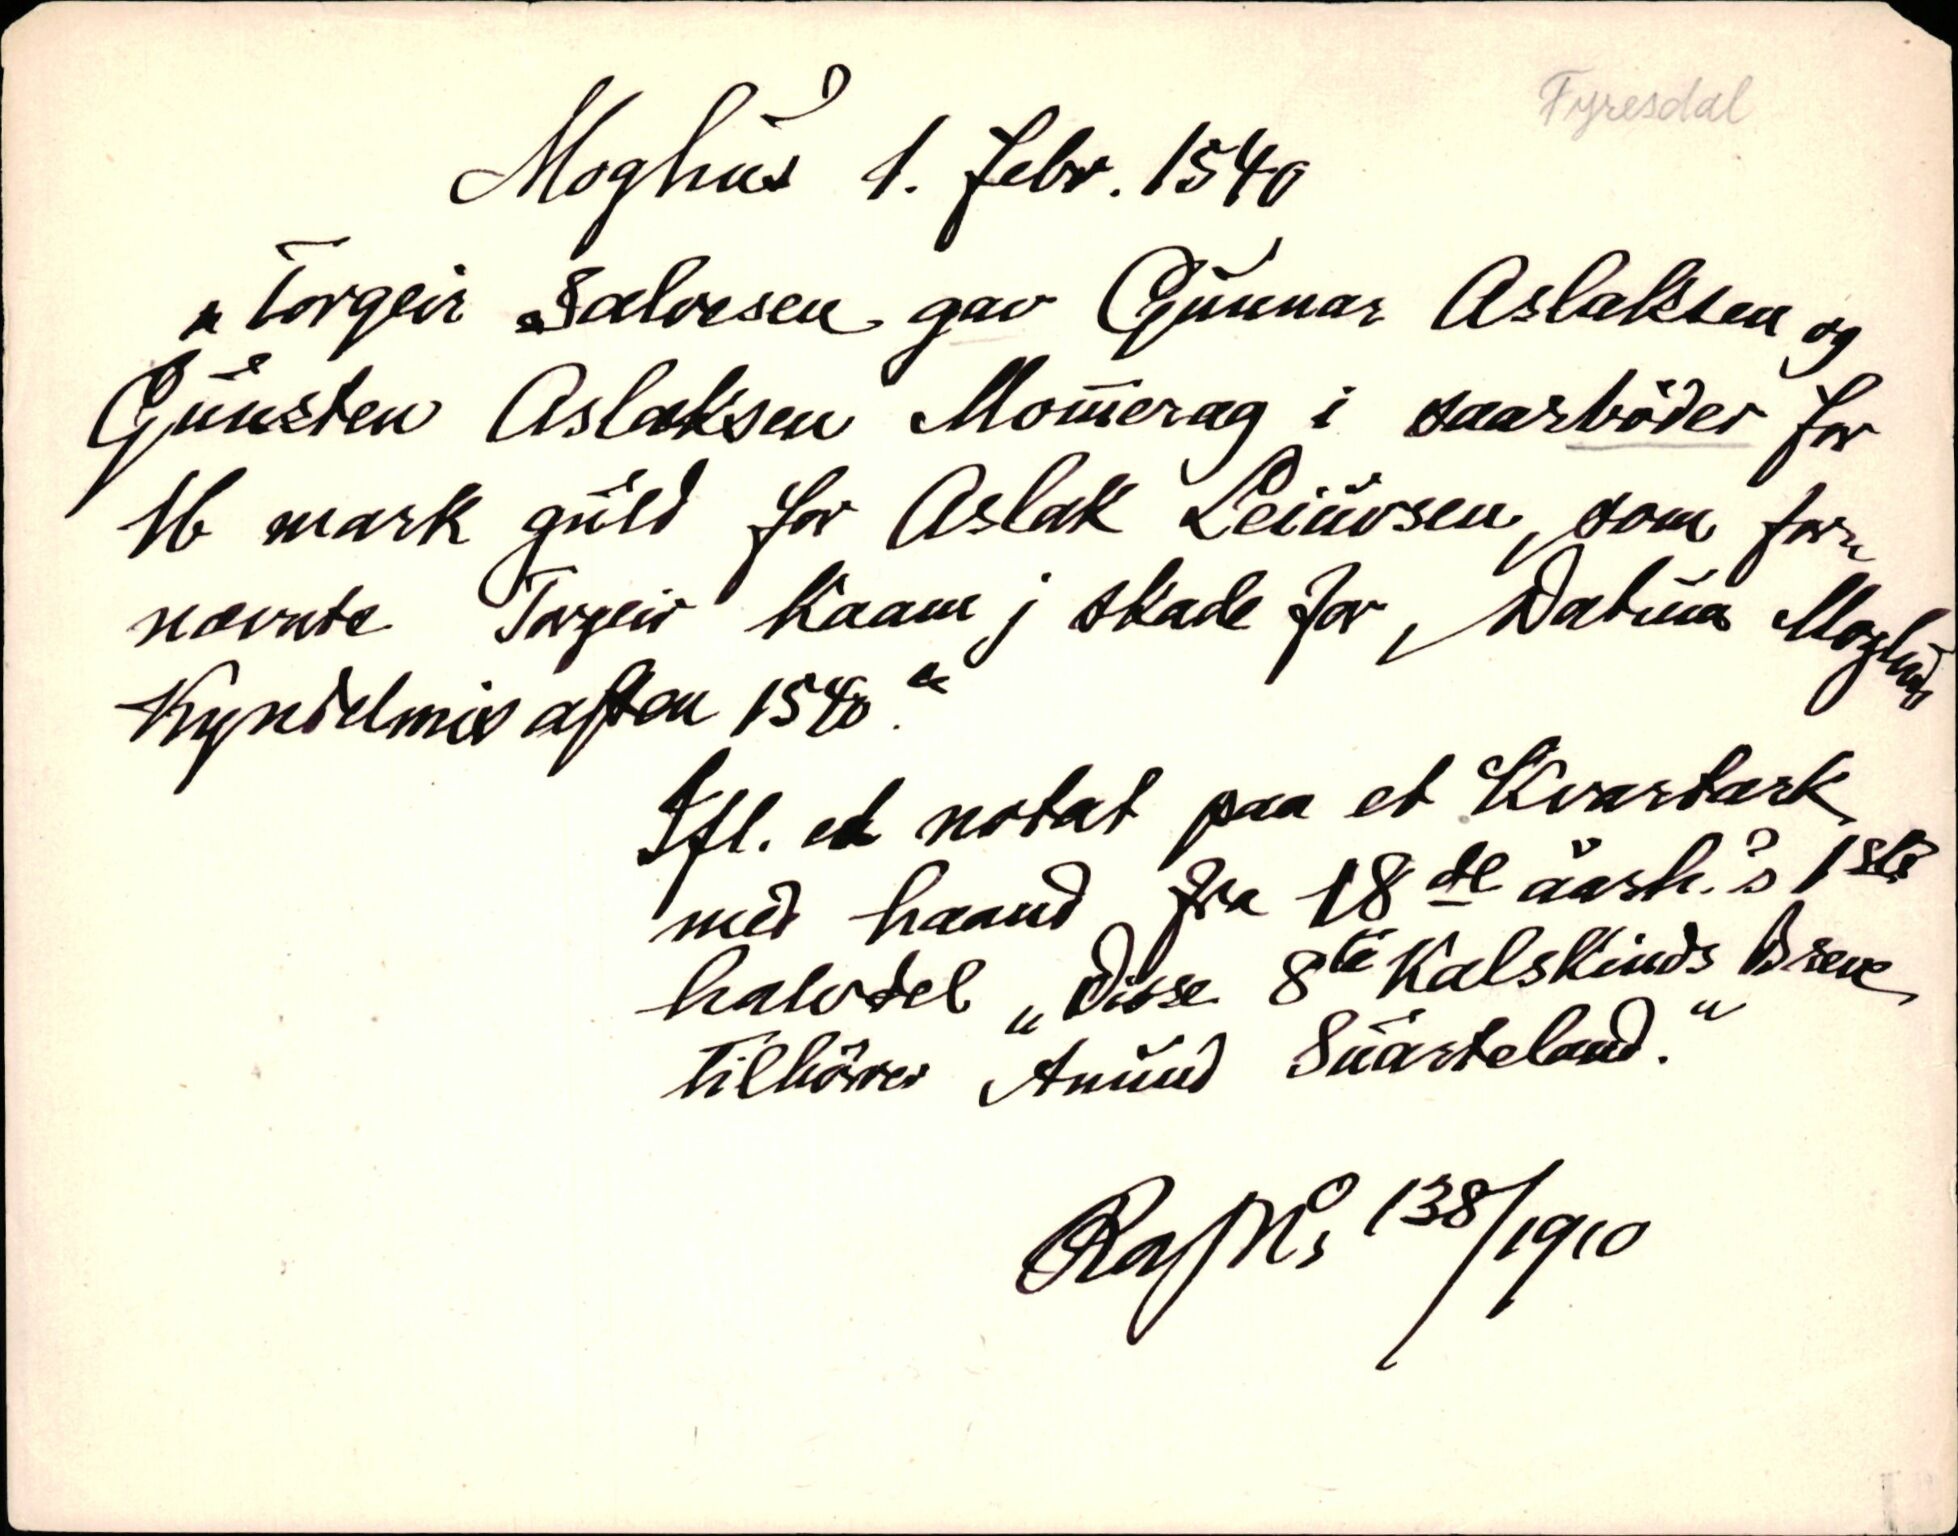 Fyresdal
Moghus 1. febr. 1540
„Torgeir Salvesen gav Gunnar Aslaksen og
Gunsten Aslaksen Momerag i saarböder for
16 mark guld for Aslak Leiuvsen, som for-
nævnte Torgeir kaam j skade for, Datum Moghus
Kyndelmis aften 1540.“
Ifl. et notat paa et Kvartark
med haand fra 18de aarh.s 1ste
halvdel „Disse 8te Kalskinds Breve
tilhörer Anund Suarteland.“
138/1910